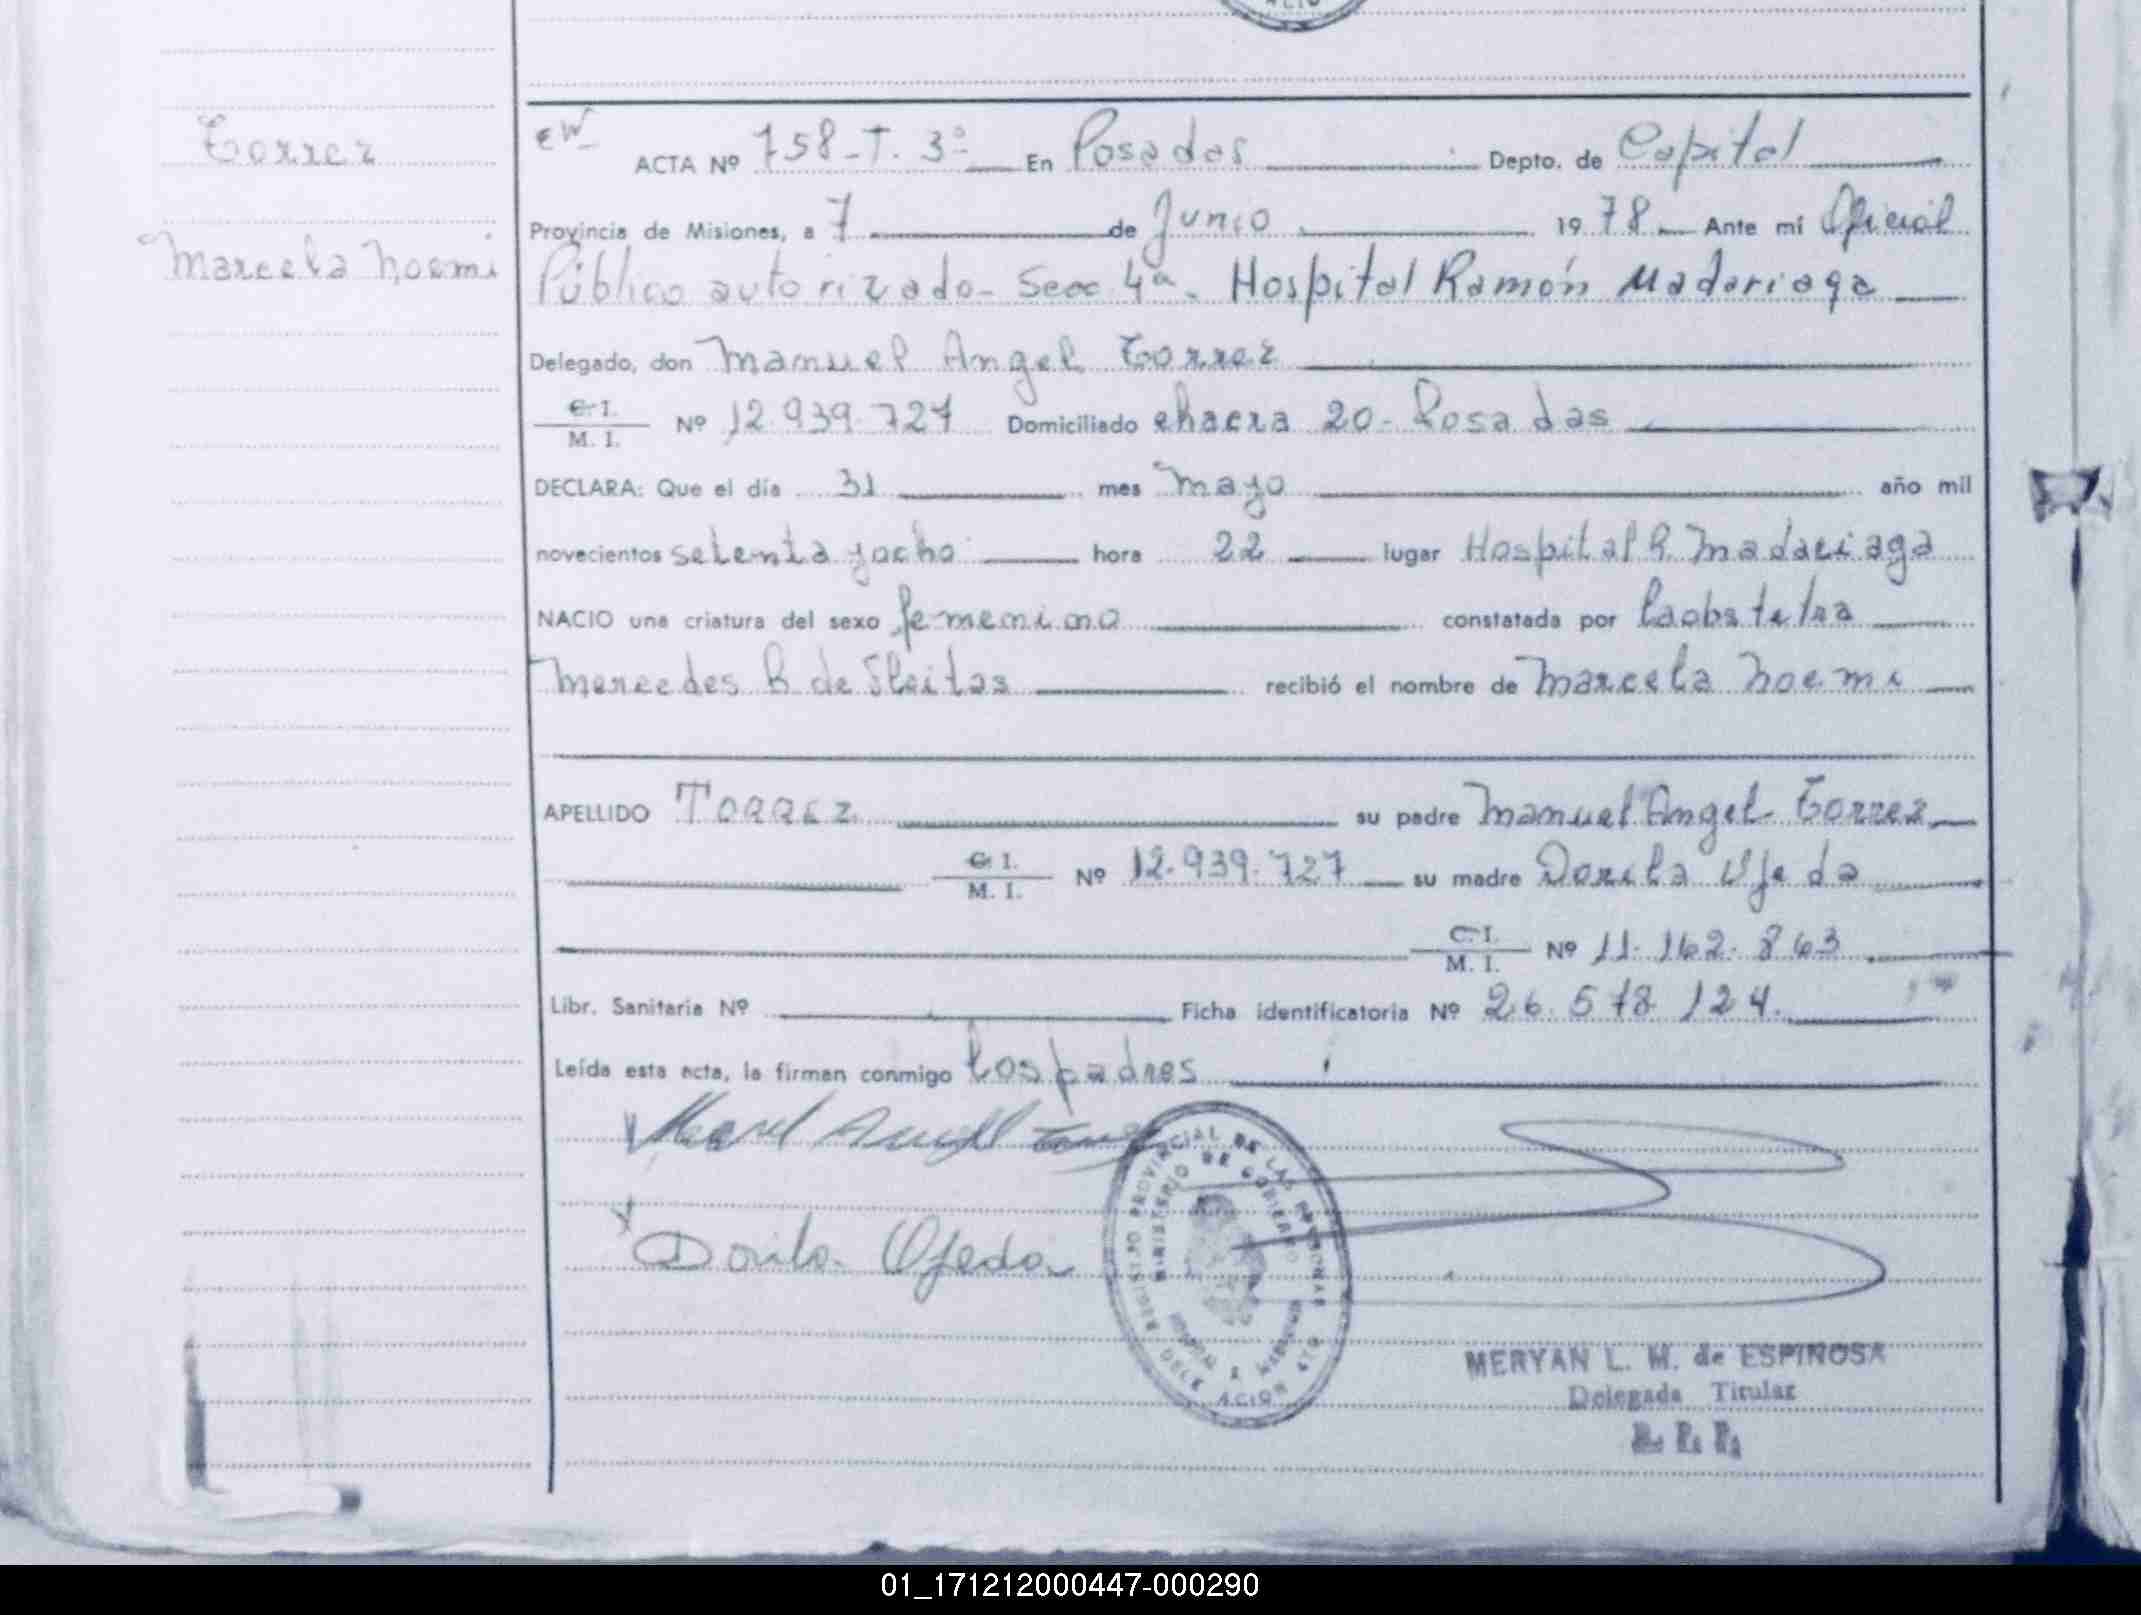 Torrez
Marcela Noemi
EW
ACTA Nº 758-T. 3º En Posadas Depto. de Capital
Provincia de Misiones, a 7 de Junio 1978 Ante mí Oficial
Público autorizado - Secc 4ª. Hospital Ramón Madariaga
Delegado, don Manuel Angel Torrez
C. I.
M. I. Nº 12.939.727 Domiciliado chacra 20 - Posadas
DECLARA: Que el día 31 mes mayo año mil
novecientos setenta y ocho hora 22 lugar Hospital R. Madariaga
NACIO una criatura del sexo femenino constatada por la obstetra
Mercedes B de Fleitas recibió el nombre de Marcela Noemi
APELLIDO Torrez su padre Manuel Angel Torrez
C. I.
M. I. Nº 12.939.727 su madre Dorila Ojeda
C. I.
M. I. Nº 11.162.863
Libr. Sanitaria Nº Ficha identificatoria Nº 26.578.124.
Leída esta acta, la firman conmigo los padres
Dorila Ojeda
PROVINCIAL DE LAS PERSONAS
MINISTERIO DE GOBIERNO
MERYAN L. M. de ESPINOSA
Delegada Titular
R. P. P.
01_171212000447-000290